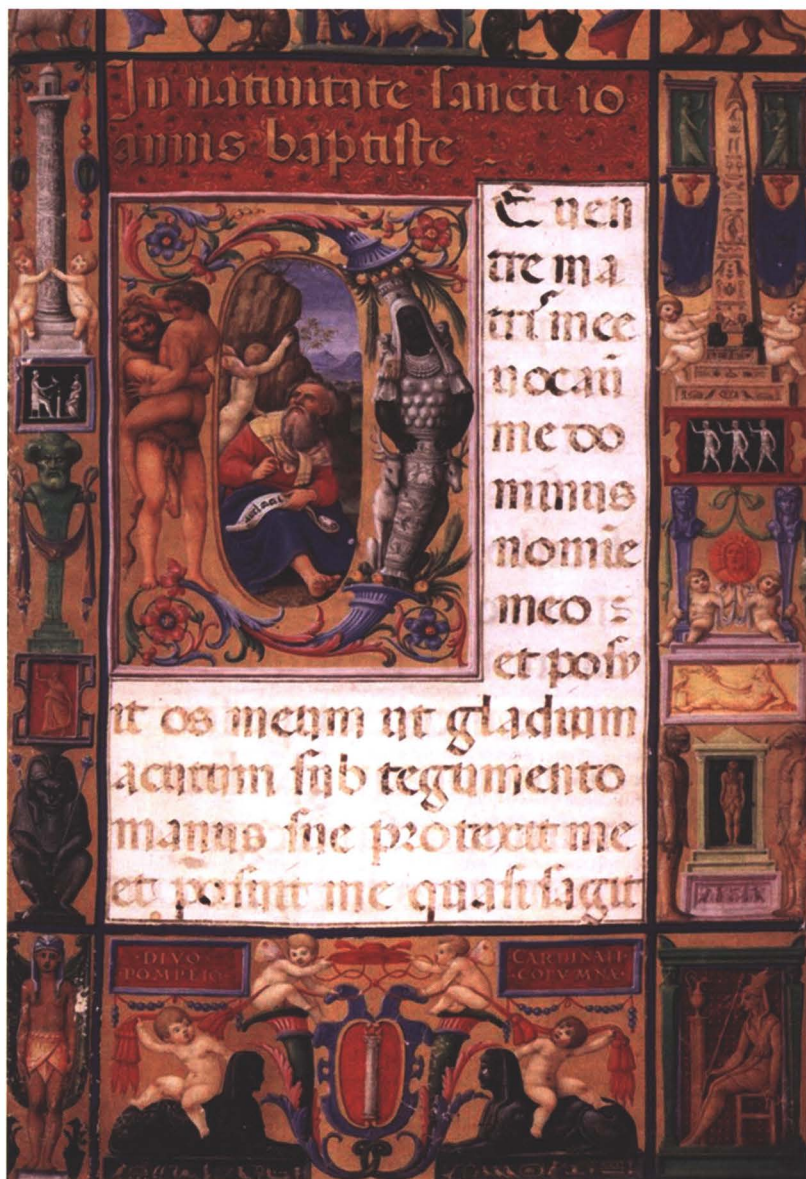 In natiuitate sancti io
annis baptiste
E uen
tre ma
triˢ mee
uocaũ
me do
minus
nomĩe
meo s
et posu
it os meum ut gladium
acutum sub tegumento
manus sue protexit me
et posuit me quasi sagit
·DIVO·
POMPEIO·
CARDINALI
·COLVMNA·